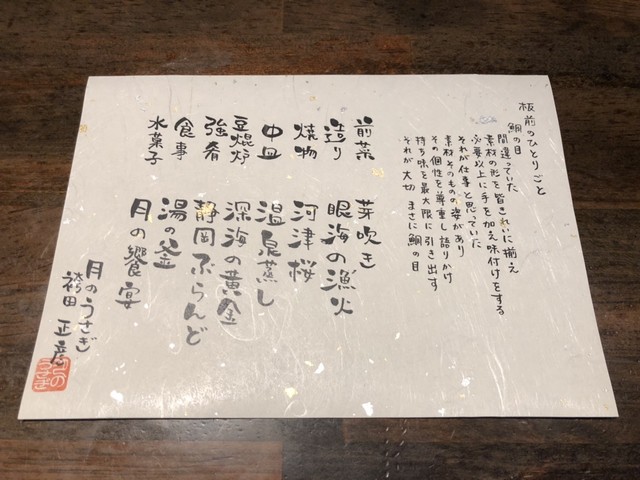 板前のひとりごと
鯛の目
間違っていた
素材の形を皆きれいに揃え
必要以上に手を加え味付けをする
それが仕事と思っていた
素材そのものの姿があり
その個性を尊重し語りかけ
持ち味を最大限に引き出す
それが大切 まさに鯛の目
前菜 芽吹き
造り 眼海の漁火
焼物 河津桜
中皿 温泉蒸し
豆焜炉 深海の黄金
強肴 静岡ぶらんど
食事 湯の釜
水菓子 月の饗宴
月のうさぎ
袴田 正彦